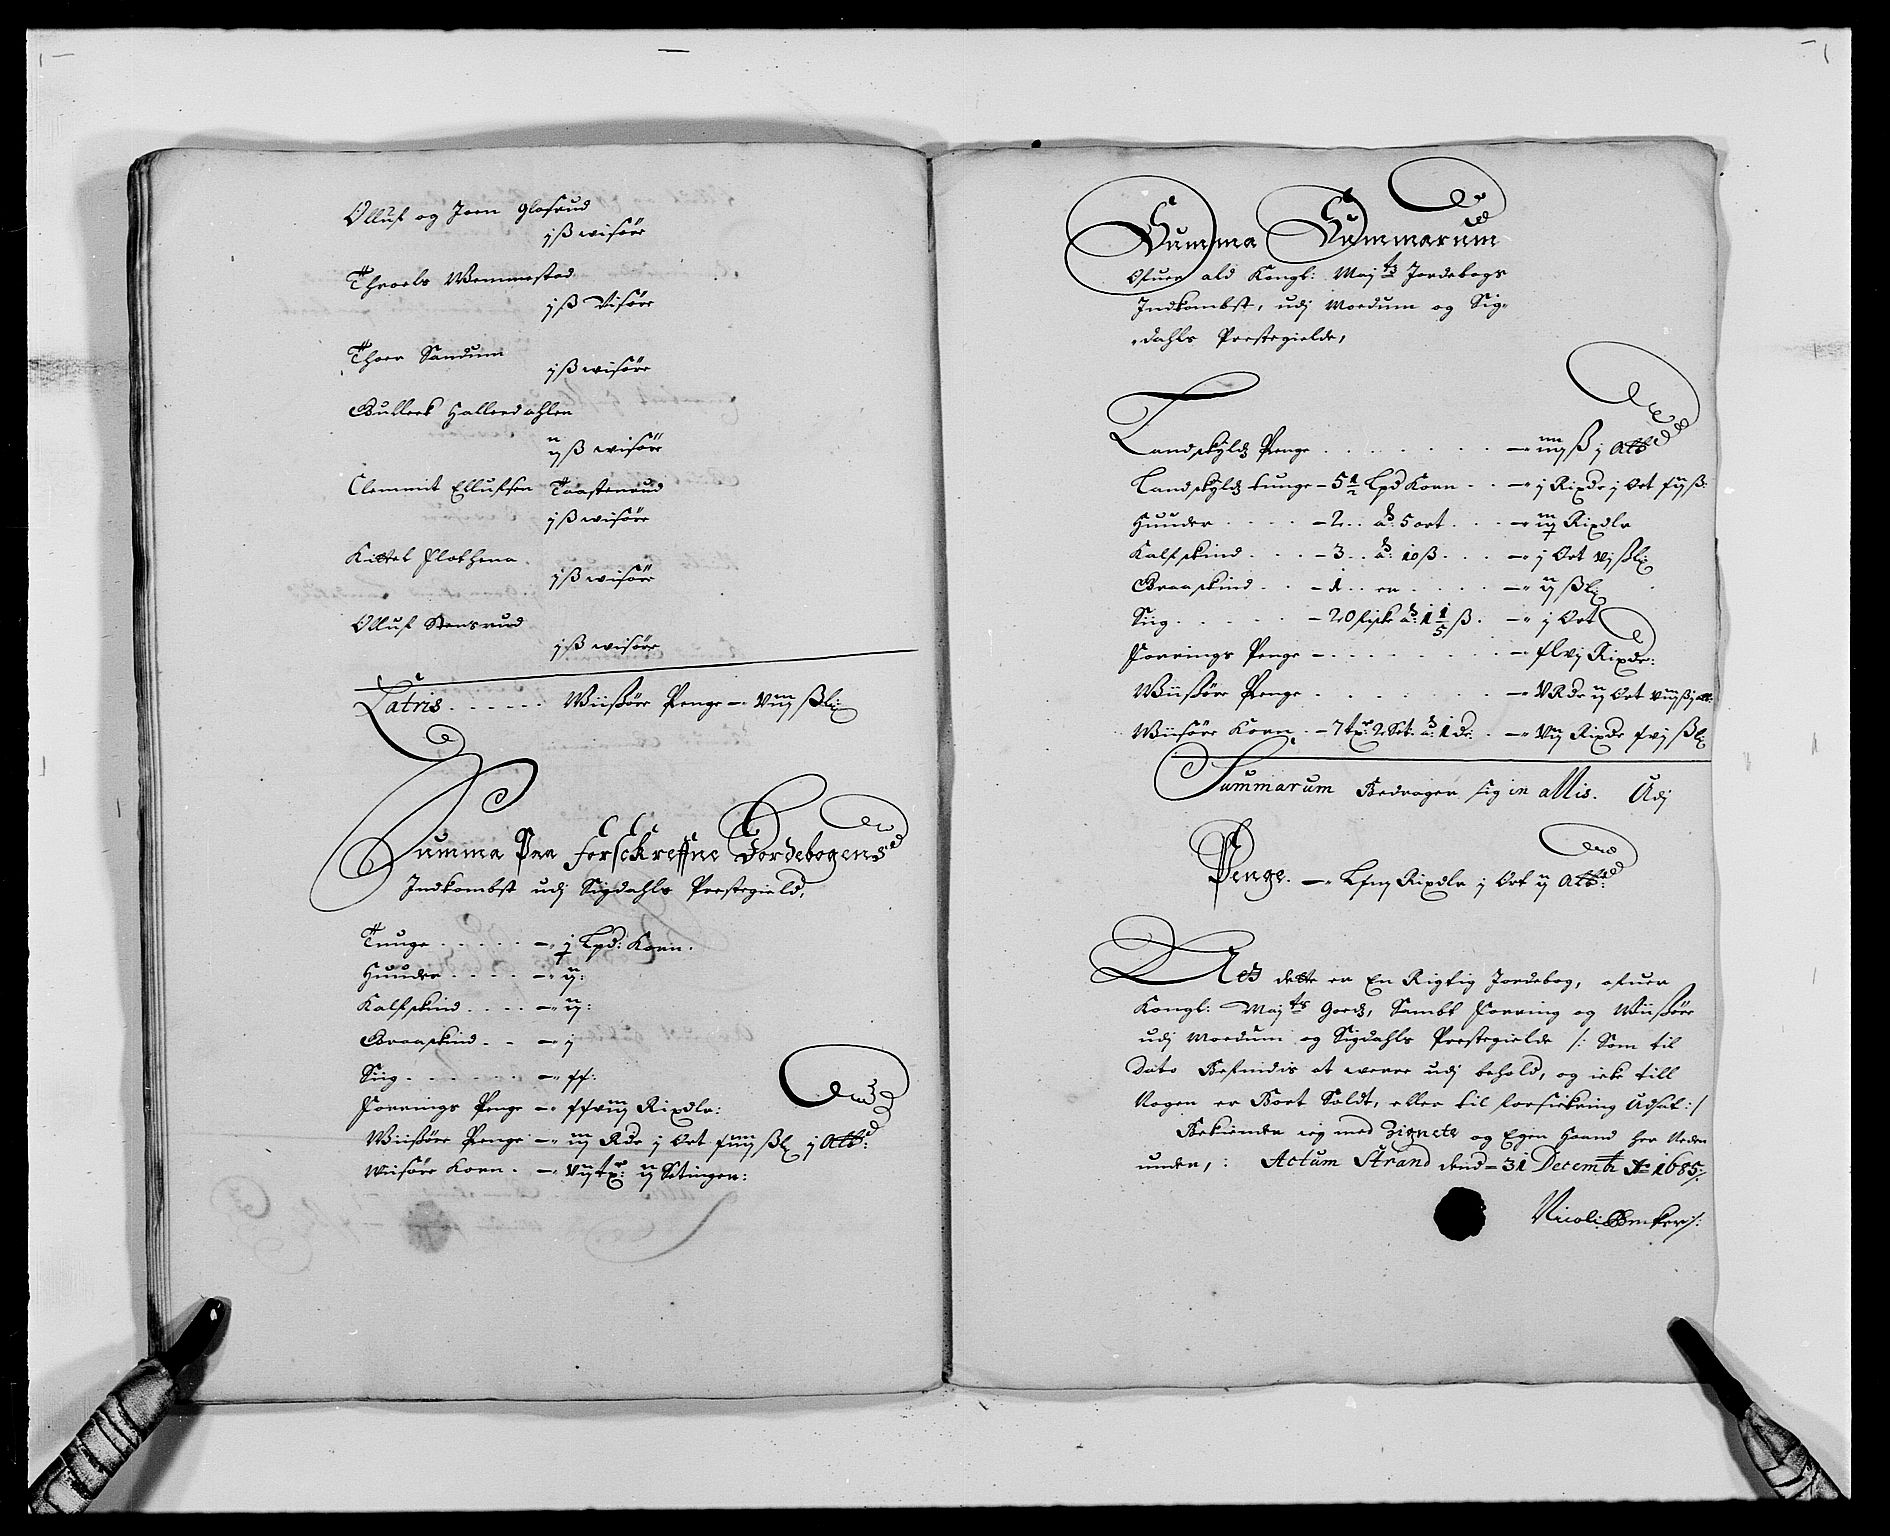 Olluf og Joen Glosrud
j ß wisöre
Throels Wemmestad
j ß Visöre
Thoer Sandum
j ß wisöre
Gulleck Hallerdahlen
ij ß wisöre
Clemmit Ellufsen Taastenrud
j ß wisöre
Kittel Flothena
j ß wisöre
Olluf Stensrud
j ß wisöre
Latris . . . . . . Wiißöre Penge - viij ßl
Summa Paa forschreffne Jordebogens
Indkombst udj Sigdahls Prestegield,
Tunge . . . . . - j Lpd: Korn.
Huuder . . . . - ij:
Kalfskind . . . . - ij:
Graaskind . . - j
Siig . . . . . . - xx:
Forrings Penge - xxviij Rixdlr:
Wiißöre Penge - iij Rdr j Ort xiiij ßl j Alb:
Wiisöre Korn . - vij tr: ij Setinger:
Summa Summarum
Ofuer ald Kongl: Maj ts Jordebogs
Indkombst, udj Modum og Sig-
dahls Prestegielde,
Landskyldz Penge . . . . . . . - iiij ß j Alb
Landskyldz tunge - 5 1/2 Lpd Korn . . - j Rixdr j Ort xij ß:
Huuder . . . . - 2 . . a: 5 ort . . . - ij Rixdlr
Kalfskind . . . - 3 . . a: 10 ß . . . - j Ort vj ßl
Graaskind . . - 1 . . er . . . . - ij ßl
Siig . . . . . - 20 fiske a: 1 1/5 ß . - j Ort
Forrings Penge - . . . . . . . - xlvj Rixdr:
Wiißöre Penge . . . . . . . - V Rdr ij Ort viij ß j alb:
Wiisöre Korn . - 7 tr: 2 Set: a: 1 dr: . - Vij Rixdr xvj ßl
Summarum Bedragen sig in allis. Udj
Penge. - Lxiij Rixdlr j Ort ij Alb:
At dette er En Rigtig Jordebog, ofuer
Kongl: Maj ts Godz, Sambt Forring og Wiißöre
udj Modum og Sigdahls Prestegielde /: Som til
Dato Befindis at werre udj behold, og icke till
Nogen er Bort Soldt, eller til forsickring Udsat :/
Bekiender ieg med Zignete og Egen Haand her Neden
under,: Actum Strand dend - 31 Decembr Ao 1685:
Nicoli